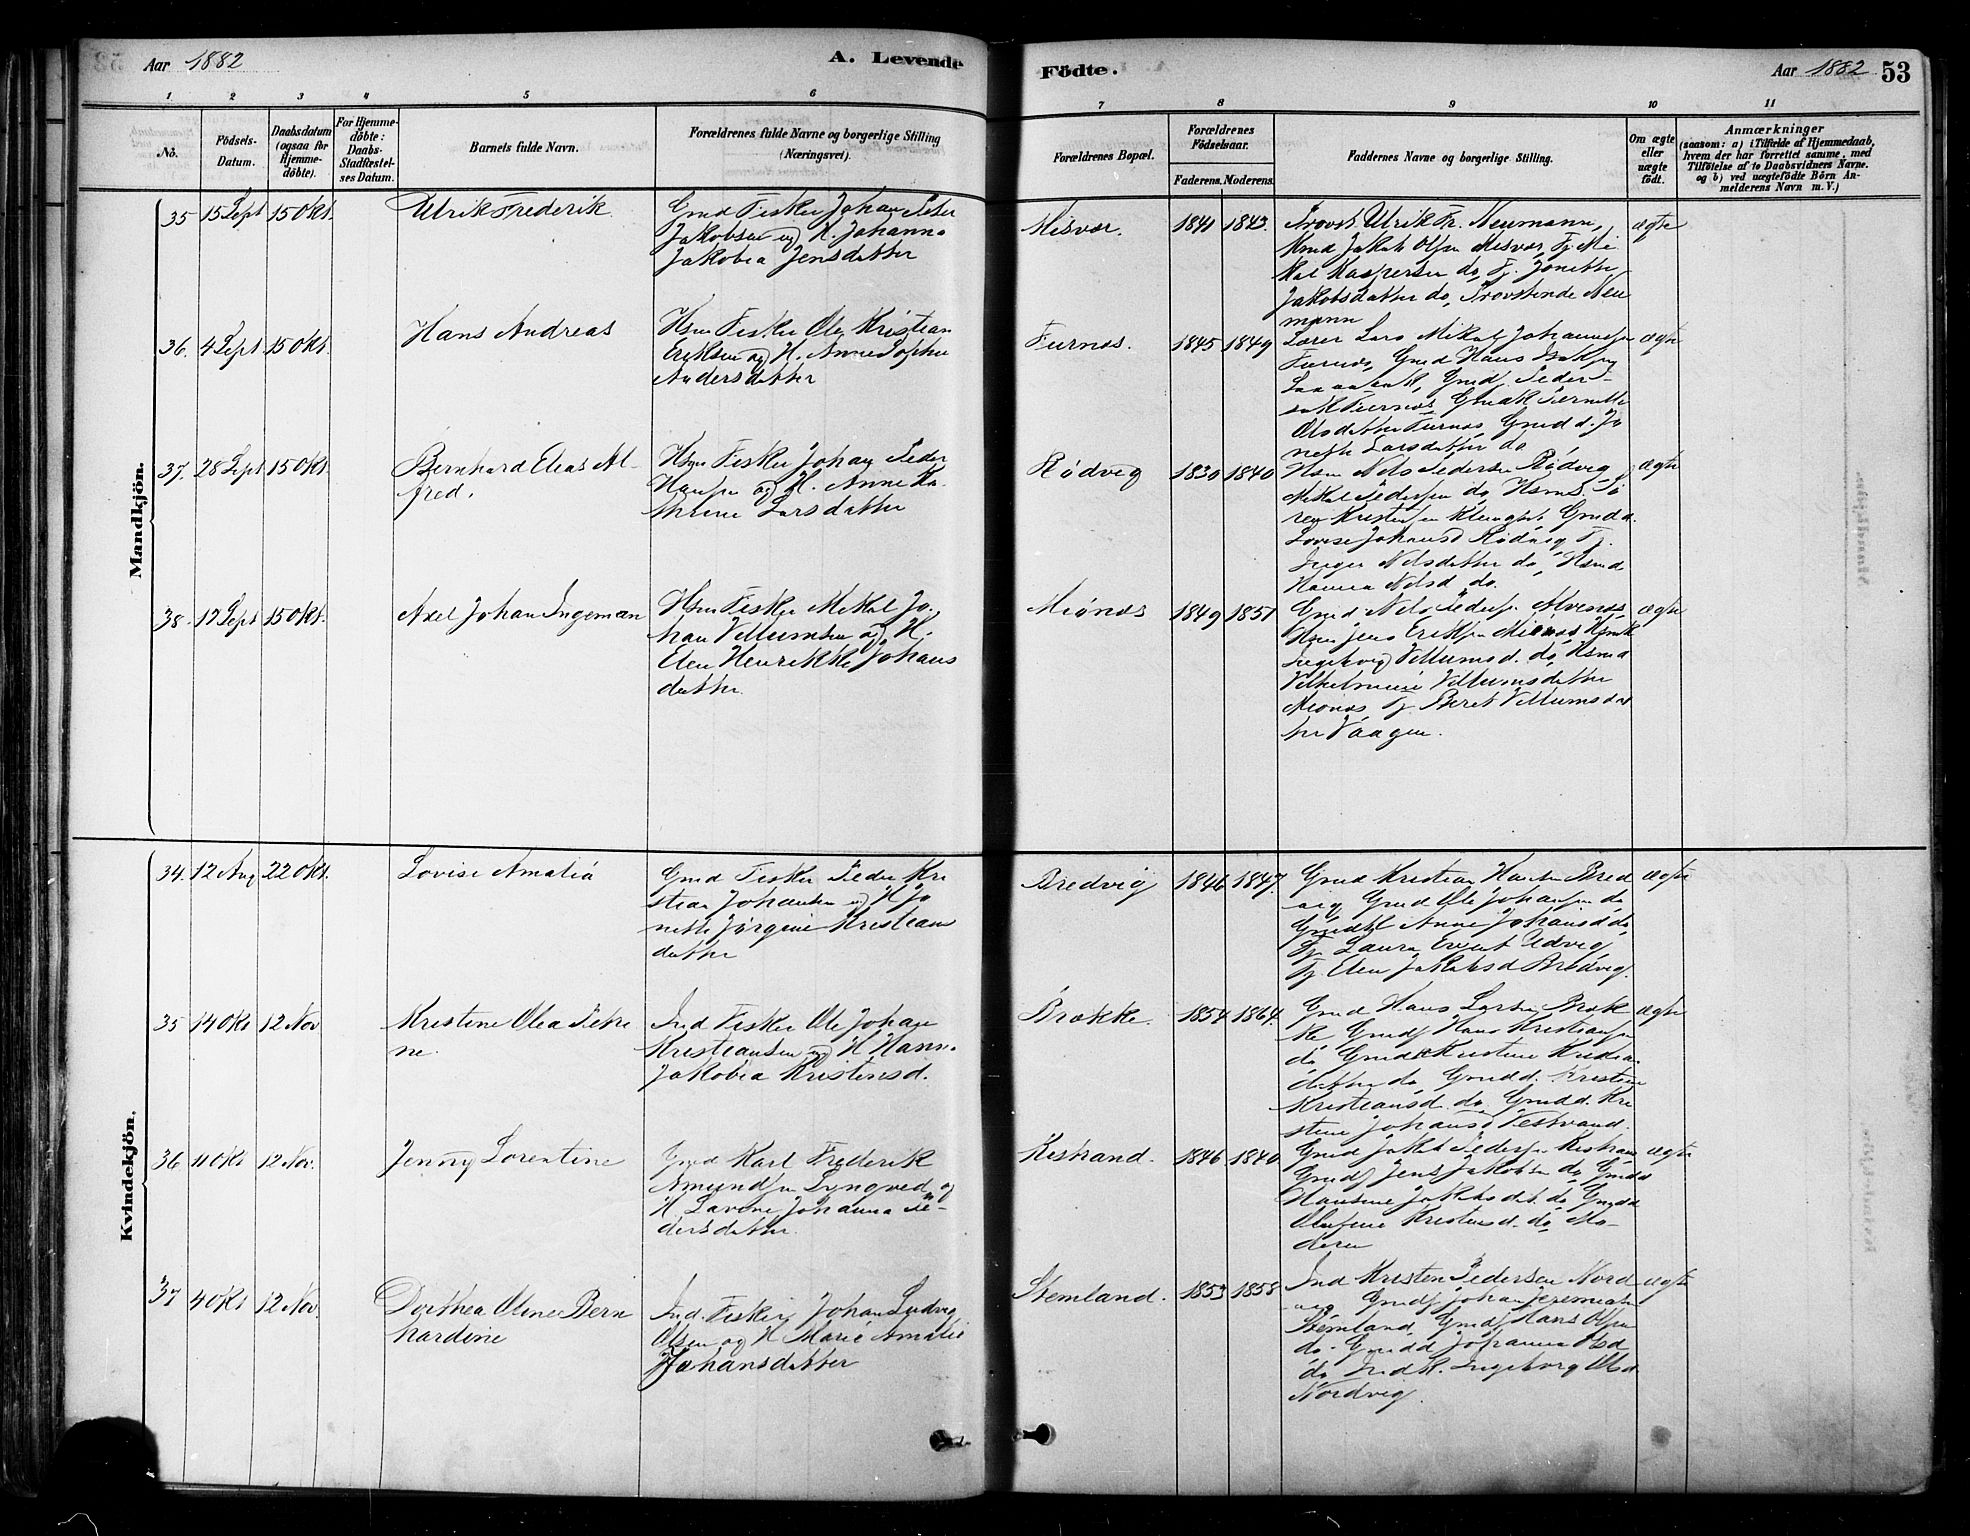 Aar 1882
A. Levende
Födte.
Aar 1882
53
1
2
3
4
5
6
7
8
9
10
11
No.
Födsels-
Datum.
Daabsdatum
(ogsaa for
Hjemme-
döbte).
For Hjemme-
döbte:
Daabs-
Stadfæstel-
ses Datum.
Barnets fulde Navn.
Forældrenes fulde Navne og borgerlige Stilling
(Næringsvei).
Forældrenes Bopæl.
Forældrenes
Födselsaar.
Faderens.
Moderens.
Faddernes Navne og borgerlige Stilling.
Om ægte
eller
uægte
født.
Anmærkninger
(saasom: a) i Tilfælde af Hjemmedaab,
hvem der har forrettet samme, med
Tilföielse af to Daabsvidners Navne.
og b) ved uægtefödte Börn An-
melderens Navn m. V.)
Mandkjön.
35
15 Sept
15 Okt.
Ulrik Frederik
Gmd Fisker Johan Peter
Jakobsen og H. Johanna
Jakobea Jensdatter
Misvær.
1841
1843.
Provst Ulrik Fr. Neumann,
Gmd Jakob Olsen Misvær, Tj. Mi
kal Kaspersen do, Tj. Jonette
Jakobsdatter do, Provstinde Neu
mann
ægte
36.
4 Sept.
15 Okt.
Hans Andreas
Hsm Fisker Ole Kristian
Eriksen og H. Anne Sophie
Andersdatter
Furnæs.
1845
1849
Lærer Lars Mikal Johannesen
Furnæs, Gmd Hans Isaksen
Gmd Peder
Furnæs Gmdk Pernille
Olsdatter Furnæs, Gmd d. Jo
neth Larsdatter do
ægte
37.
28 Sept
15 Okt.
Bernhard Elias Al-
fred.
Hsm Fisker Johan Peder
Hansen og H. Anne Ka
thrine Larsdatter
Rødvig
1830
1840
Hsm Nils Pedersen Rødvig
Mikal Pedersen do, Hsms. Sö
ren Kristensen Gmd d.
Lovise Johansd Rødvig Tj.
Inger Nilsdatter do, Hsmd
Hanna Nilsd do.
ægte
38.
17 Sept
15 Okt.
Axel Johan Ingeman
Hsm Fisker Mikal Jo-
han Villumsen og H.
Elen Henrikke Johans
datter.
Miönæs
1849
1851
Gmd Nils Peders. Alvenæs,
Hsm Jens Eriksen Miönæs, Hsmk
Ingeborg Villumsd. do, Hsmd
Vilhelmine Villumsdatter
Miönæs Tj. Beret Villumsdat
ter Vaagen.
ægte
Kvindekjön.
34.
12 Aug
22 Okt.
Lovise Amalia
Gmd Fisker Peder Kri
stian Johansen og H Jo
nette Jörgine Kristians
datter
Bredvig
1846
1847.
Gmd Kristian Hansen Bred
vig Gmd Ole Johansen do
Gmdk Anne Johansd do,
Tj. Laura Evert Udvig,
Tj. Elen Jakobsd Bredvig.
ægte
35
14 Okt
12 Nov
Kristine Olea Petri
ne.
Ind Fisker Ole Johan
Kristiansen og H. Hanna
Jakobea Kristensd.
Brække.
1854
1864.
Gmd Hans Larsen Bræk
ke Gmds Hans Kristiansen
do Gmdk Kristine Kristian
datter do, Gmdd. Kristine
Kristiansd. do. Gmdd. Kri
stine Johansd Vestvand.
ægte
36
11 Okt
12 Nov.
Jenny Lorentine
Gmd Karl Frederik
Amundsen Lyngved og
H Lavine Johanna Pe-
dersdatter.
Kistrand.
1846
1840
Gmd Jakob Pedersen Kistran
Gmds Jens Jakobsen do, Gmdd
Hansine Jakobsdt. do, Gmdd
Olufine Kristensd. do, Mo-
deren
ægte
37
4 Okt
12 Nov
Dorthea Oline Bern
hardine
Ind. Fisker Johan Ludvig
Olsen og H Marie Amalie
Johansdatter
Stemland.
1853
1858
Ind Kristen Pedersen Nord
vig Gmds Johan Jeremiasen
Stemland, Gmds Hans Olsen
do. Gmdd Johanna Olsd
do Indk. Ingeborg Olsd
Nordvig.
ægte